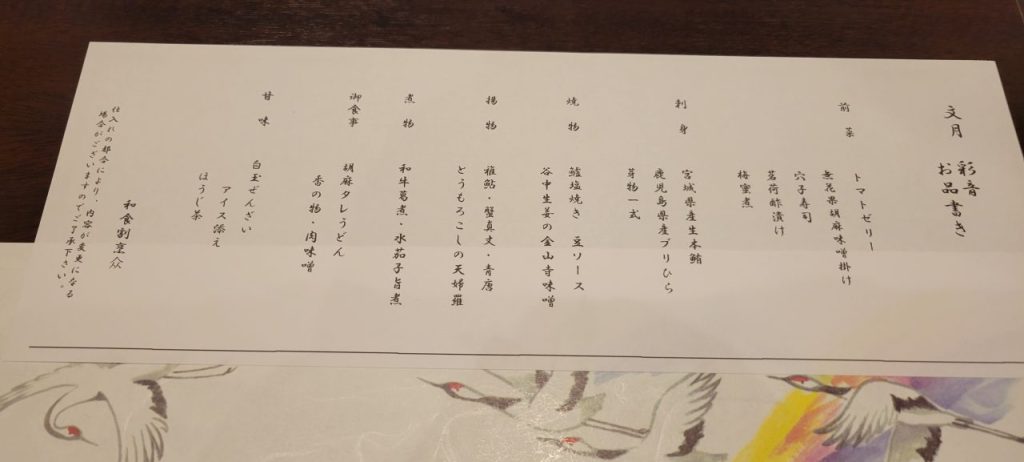 文月 彩音
お品書き
前菜
トマトゼリー
無花果胡麻味噌掛け
穴子寿司
茗荷酢漬け
梅蜜煮
刺身
宮城県産生本鮪
鹿児島県産ブリひら
芽物一式
焼物
鱸塩焼き 豆ソース
谷中生姜の金山寺味噌
揚物
稚鮎・蟹真丈・青唐
とうもろこしの天婦羅
煮物
和牛葛煮・水茄子旨煮
御食事
胡麻タレうどん
香の物・肉味噌
甘味
白玉ぜんざい
アイス添え
ほうじ茶
和食割烹
仕入れの都合により、内容が変更になる
場合がございますのでご了承下さい。